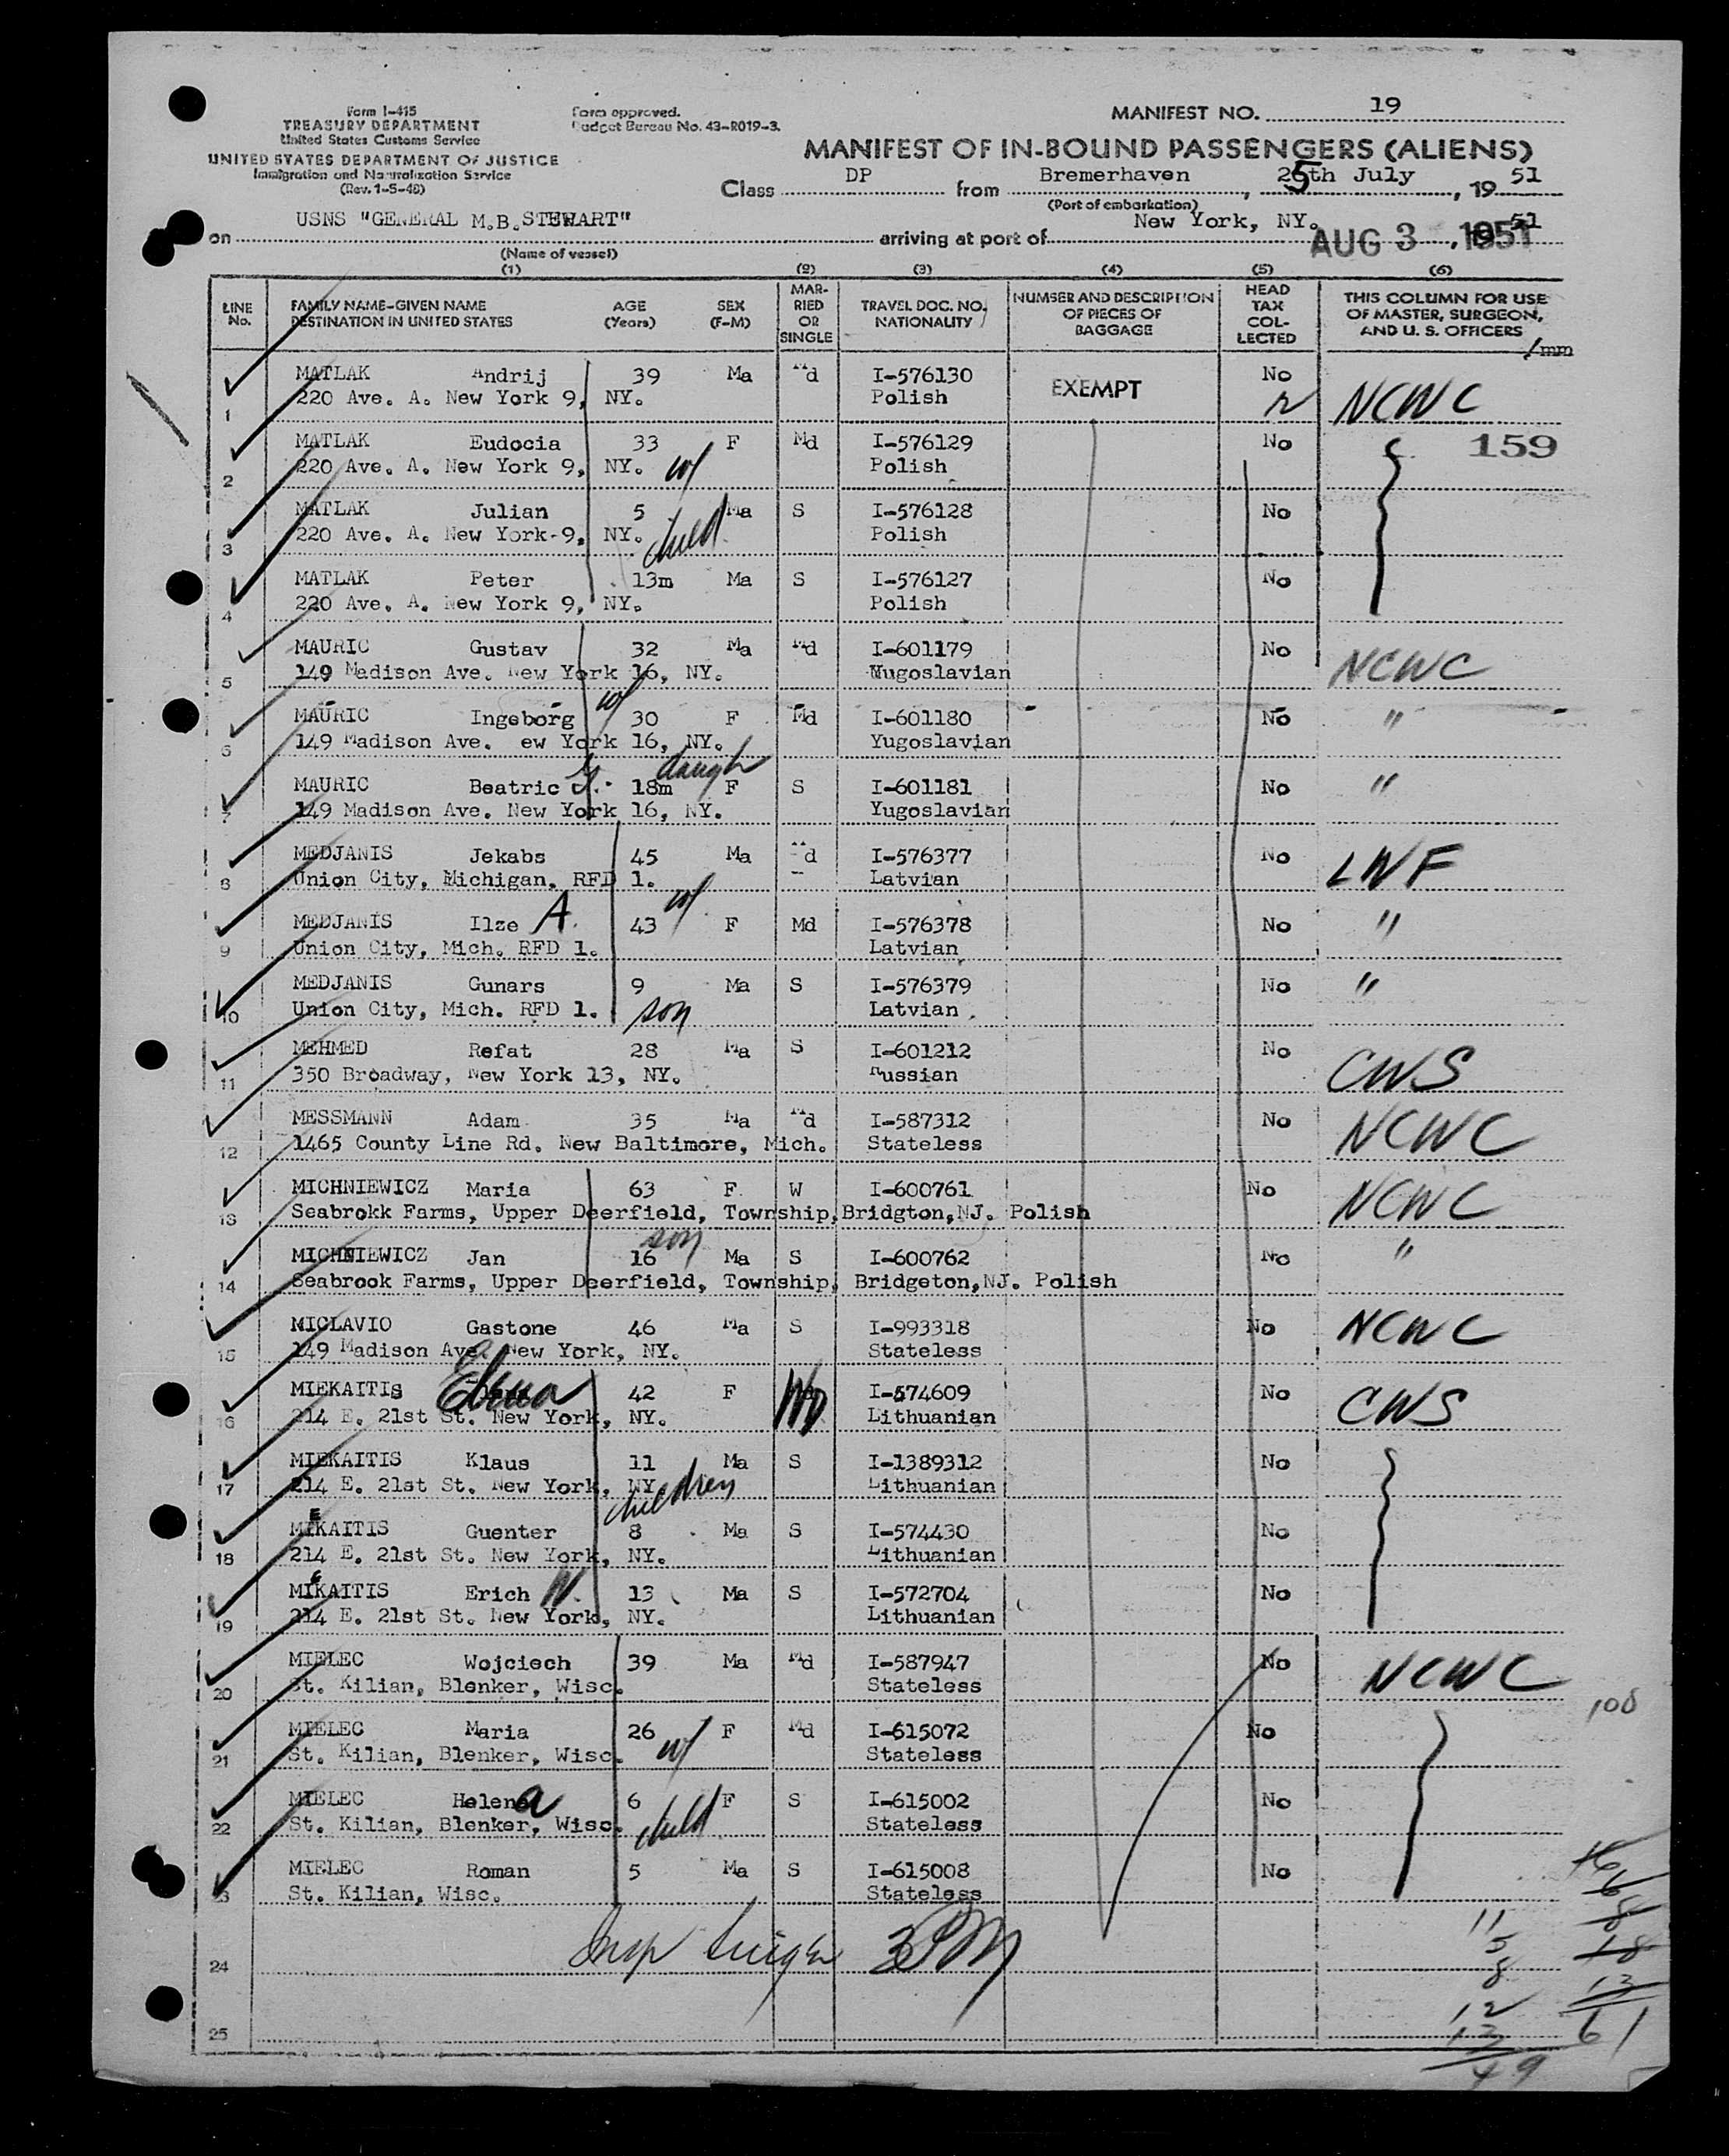 Form I-415
TREASURY DEPARTMENT
United States Customs Service
UNITED STATES DEPARTMENT OF JUSTICE
Immigration and Naturalization Service
(Rev. 1-5-48)
Form approved.
Budget Bureau No. 43-R019-3.
MANIFEST NO. 19
MANIFEST OF IN-BOUND PASSENGERS (ALIENS)
Class DP from Bremerhaven, 25th July, 19 51
(Port of embarkation)
on USNS "GENERAL M.B. STEWART" arriving at port of New York, NY. AUG 3 1951
(Name of vessel)
(1) (2) (3) (4) (5) (6)
LINE No. FAMILY NAME-GIVEN NAME DESTINATION IN UNITED STATES AGE (Years) SEX (F-M) MARRIED OR SINGLE TRAVEL DOC. NO. NATIONALITY NUMBER AND DESCRIPTION OF PIECES OF BAGGAGE HEAD TAX COLLECTED THIS COLUMN FOR USE OF MASTER, SURGEON, AND U. S. OFFICERS
/mm
1 MATLAK Andrij 39 Ma Md I-576130 EXEMPT No NCWC
220 Ave. A. New York 9, NY. Polish
2 MATLAK Eudocia 33 F Md I-576129 No 159
220 Ave. A. New York 9, NY. w/ Polish
3 MATLAK Julian 5 Ma S I-576128 No
220 Ave. A. New York-9, NY. child Polish
4 MATLAK Peter 13m Ma S I-576127 No
220 Ave. A. New York 9, NY. Polish
5 MAURIC Gustav 32 Ma Md I-601179 No NCWC
149 Madison Ave. New York 16, NY. Yugoslavian
w/
6 MAURIC Ingeborg 30 F Md I-601180 No "
149 Madison Ave. ew York 16, NY. Yugoslavian
daugh
7 MAURIC Beatric 18m F S I-601181 No "
149 Madison Ave. New York 16, NY. Yugoslavian
8 MEDJANIS Jekabs 45 Ma Md I-576377 No LWF
Union City, Michigan. RFD 1. Latvian
9 MEDJANIS Ilze A. 43 w/ F Md I-576378 No "
Union City, Mich. RFD 1. Latvian
10 MEDJANIS Gunars 9 Ma S I-576379 No "
Union City, Mich. RFD 1. son Latvian
11 MEHMED Refat 28 Ma S I-601212 No CWS
350 Broadway, New York 13, NY. Russian
12 MESSMANN Adam 35 Ma Md I-587312 No NCWC
1465 County Line Rd. New Baltimore, Mich. Stateless
13 MICHNIEWICZ Maria 63 F W I-600761 No NCWC
Seabrokk Farms, Upper Deerfield, Township, Bridgton, NJ. Polish
son
14 MICHNIEWICZ Jan 16 Ma S I-600762 No "
Seabrook Farms, Upper Deerfield, Township, Bridgeton, NJ. Polish
15 MICLAVIO Gastone 46 Ma S I-993318 No NCWC
149 Madison Ave. New York, NY. Stateless
16 MIEKAITIS 42 F I-574609 No CWS
214 E. 21st St. New York, NY. Lithuanian
17 MIEKAITIS Klaus 11 Ma S I-1389312 No
214 E. 21st St. New York, NY. children Lithuanian
18 MIEKAITIS Guenter 8 Ma S I-574430 No
214 E. 21st St. New York, NY. Lithuanian
19 MIEKAITIS Erich W. 13 Ma S I-572704 No
214 E. 21st St. New York, NY. Lithuanian
20 MIELEC Wojciech 39 Ma Md I-587947 No NCWC
St. Kilian, Blenker, Wisc. Stateless
108
21 MIELEC Maria 26 F Md I-615072 No
St. Kilian, Blenker, Wisc. w/ Stateless
22 MIELEC Helena 6 F S I-615002 No
St. Kilian, Blenker, Wisc. child Stateless
23 MIELEC Roman 5 Ma S I-615008 No
St. Kilian, Wisc. Stateless
24 Insp
25
11
5
8
12
13
49
16
6
8
18
13
61